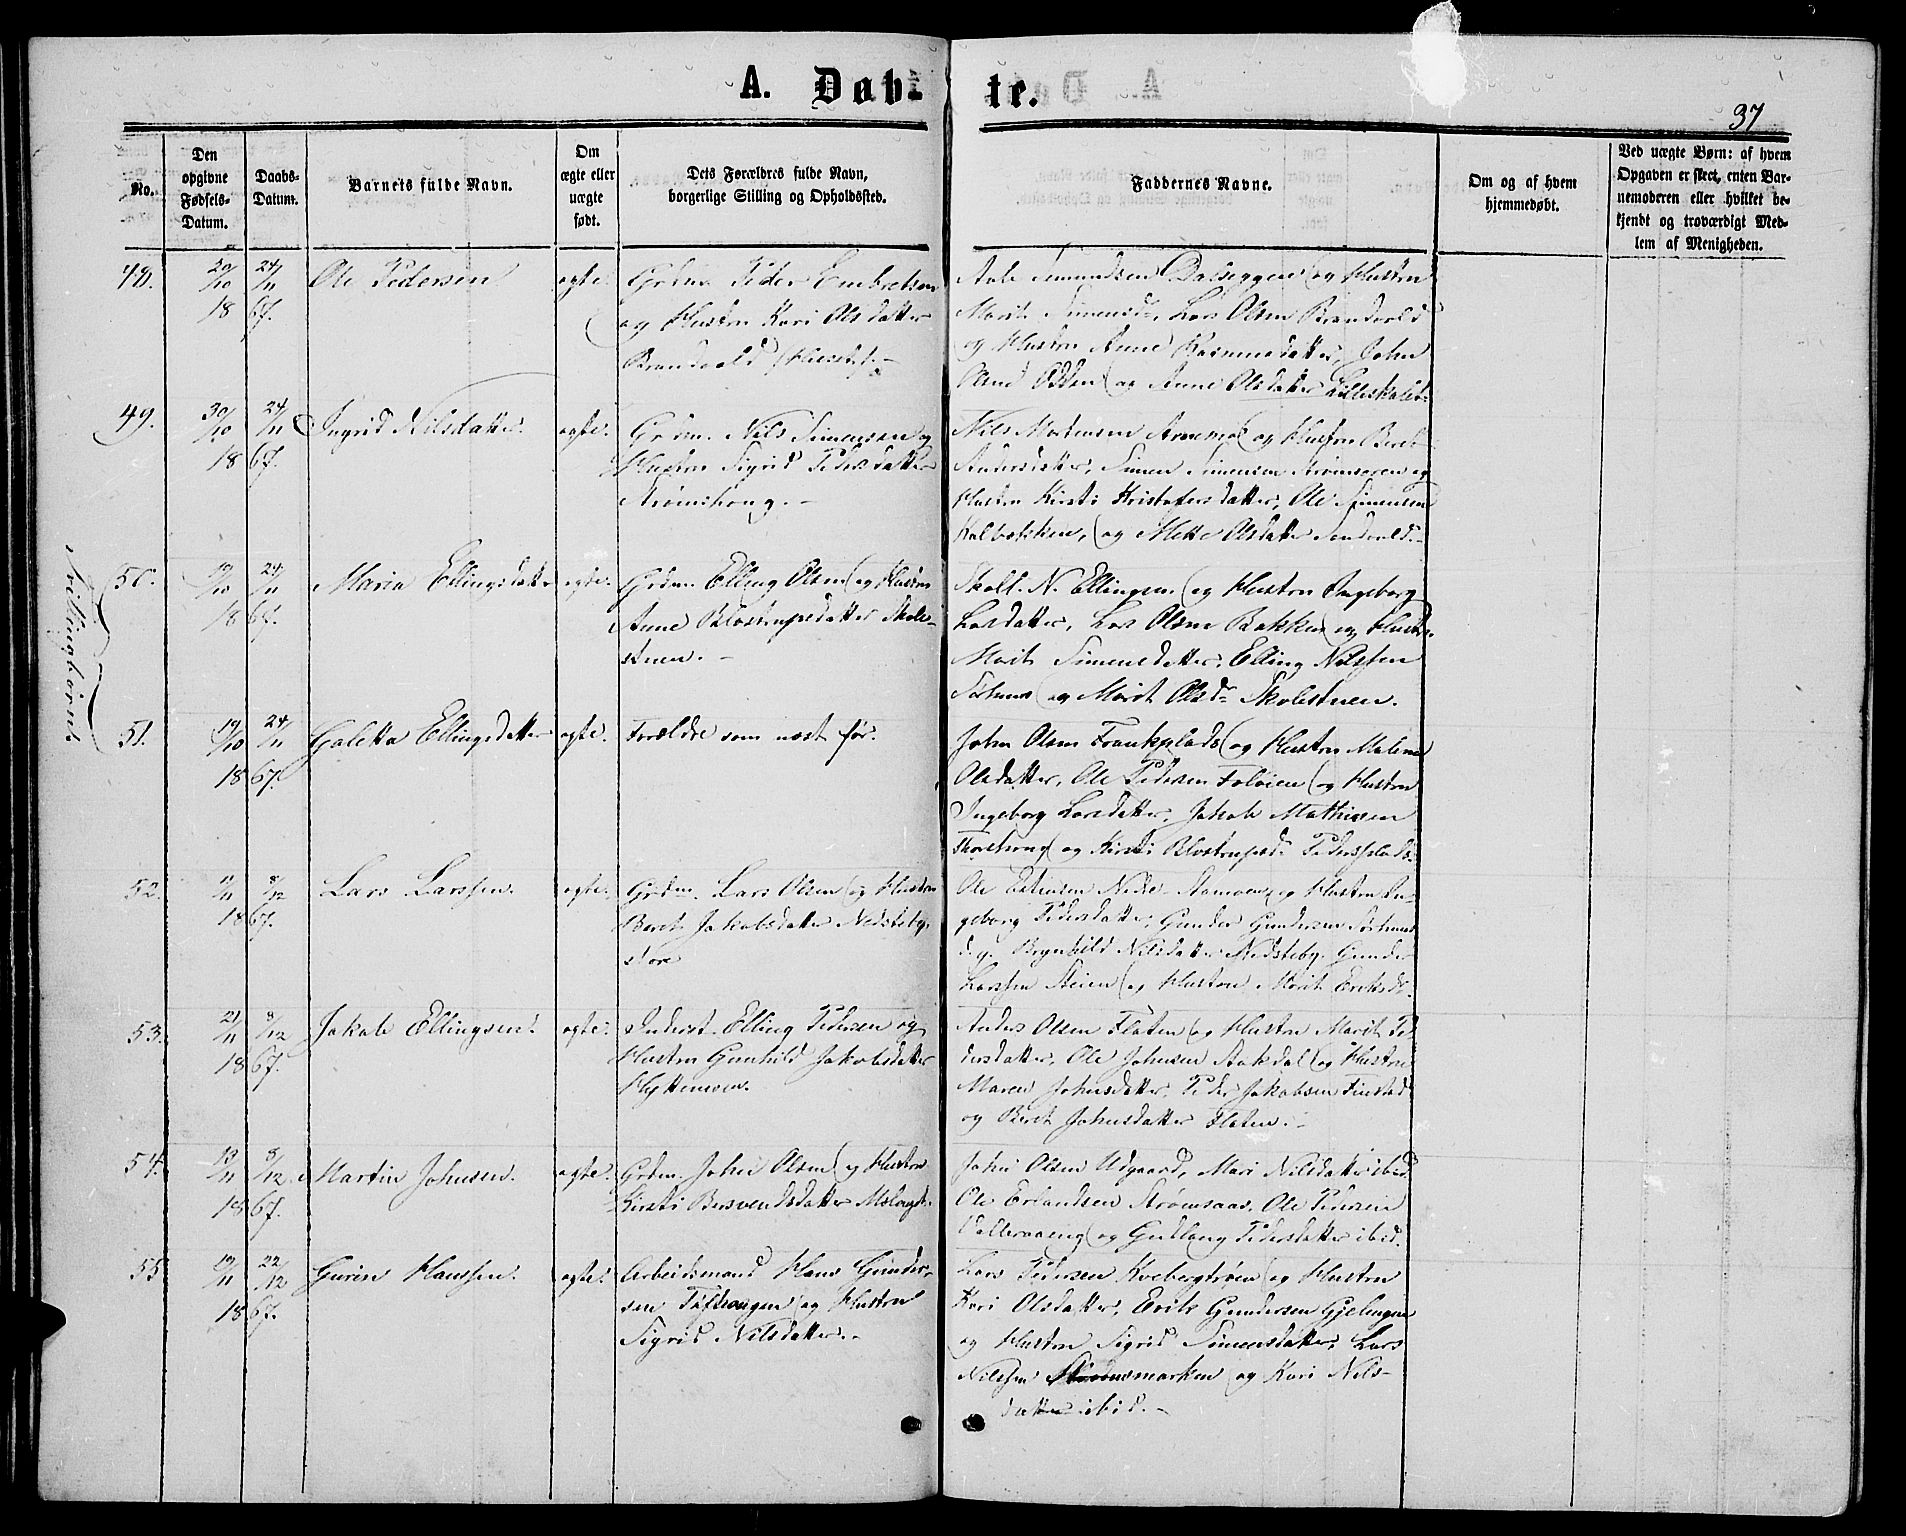 A. Døbte.
37
No.
Den opgivne Fødsels-Datum.
Daabs-Datum.
Barnets fulde Navn.
Om ægte eller uægte født.
Dets Forældres fulde Navn, borgerlige Stilling og Opholdssted.
Faddernes Navne.
Om og af hvem hjemmedøbt.
Ved uægte Børn: af hvem Opgaven er skeet, enten Barnemoderen eller hvilket bekjendt og troværdigt Medlem af Menigheden.
48. 20/10 1867. 24/11 Ole Pedersen ægte.
Grdm. Peder Embretsen
og Hustru Kari Olsdatter
Brandvold
Simensen Dalseggen og Hustru
Marit Simensd., Lars Olsen Brandvold
og Hustru Anne Rasmusdatter, John
Olsen Odden og Anne Olsdatter
49. 30/10 1867. 24/11 Ingrid Nilsdatter. ægte.
Grdm. Nils Simensen og
Hustru Sigrid Pedersdatter
Strømshoug.
Nils Mortensen Arnemo og Hustru Beret
Andersdatter, Simen Simensen Strømsøren og
Hustru Kirsti Kristofersdatter, Ole Simensen
Kalbækken, og Mette Olsdatter Sandvold.
Tvillingbørn
50. 19/10 1867. 24/11 Maria Ellingsdatter ægte.
Grdm. Elling Olsen og Hustru
Anne Blostrupsdatter Skole-
stuen.
Skoll. N. Ellingsen og Hustru Ingeborg
Larsdatter, Lars Olsen Bakken og Hustru
Marit Simensdatter, Elling Nilssen
Sørhuus og Marit Olsd. Skolestuen.
51. 19/10 1867. 24/11 Galetta Ellingsdatter ægte.
Forældre som næst før.
John Olsen Frankplads og Hustru Malena
Olsdatter, Ole Pedersen Foløien og Hustru
Ingeborg Larsdatter, Jakob Mathiesen
og Kirsti Blostrupsd. Pedersplads.
52. 11/11 1867. 8/12 Lars Larssen. ægte.
Grdm. Lars Olsen og Hustru
Beret Jakobsdatter Nedsteby
store
Ole Estensen Nedre Stamoen og Hustru In-
geborg Pedersdatter, Gunder Gundersen Sørhuus
Brynhild Nilsdatter Nedsteby, Gunder
Larssen Steien og Hustru Marit Eriksd.
53. 21/11 1867. 8/12 Jakob Ellingsen. ægte.
Inderst Elling Pedersen og
Hustru Gunhild Jakobsdatter
Hyttemoen.
Anders Olsen Floten og Hustru Marit Pe-
dersdatter, Ole Johnsen Aakdal og Hustru
Maren Johnsdatter, Peder Jakobsen Finstad
og Beret Johnsdatter Floten.
54. 13/11 1867. 8/12 Martin Johnsen. ægte.
Grdm. John Olsen og Hustru
Kirsti Bersvendsdatter
John Olsen Udgaard, Mari Nilsdatter ibid.
Ole Erlandsen Strømsaas, Ole Pedersen
Vollervaeng og Gudlaug Pedersdatter ibid.
55. 19/11 1867. 22/12 Gurin Hanssen. ægte.
Arbeidsmand Hans Gunder-
sen Tufthaugen og Hustru
Sigrid Nilsdatter.
Lars Pedersen Kvebergtrøen og Hustru
Kari Olsdatter, Erik Gundersen Gjelingmo
og Hustru Sigrid Simensdatter, Lars
Nilssen marken og Kari Nils-
datter ibid.